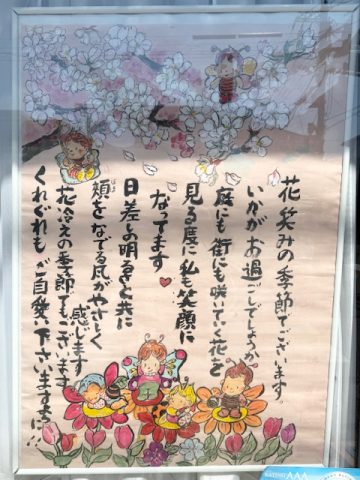 花笑みの季節でございます
いかがお過ごしでしょうか
庭にも街にも咲いていく花を
見る度に私も笑顔に
なってます
日差しの明るさと共に
頬をなでる風がやさしく
感じます
花冷えの季節でもございます
くれぐれもご自愛下さいますように!!
ほほ
AAA